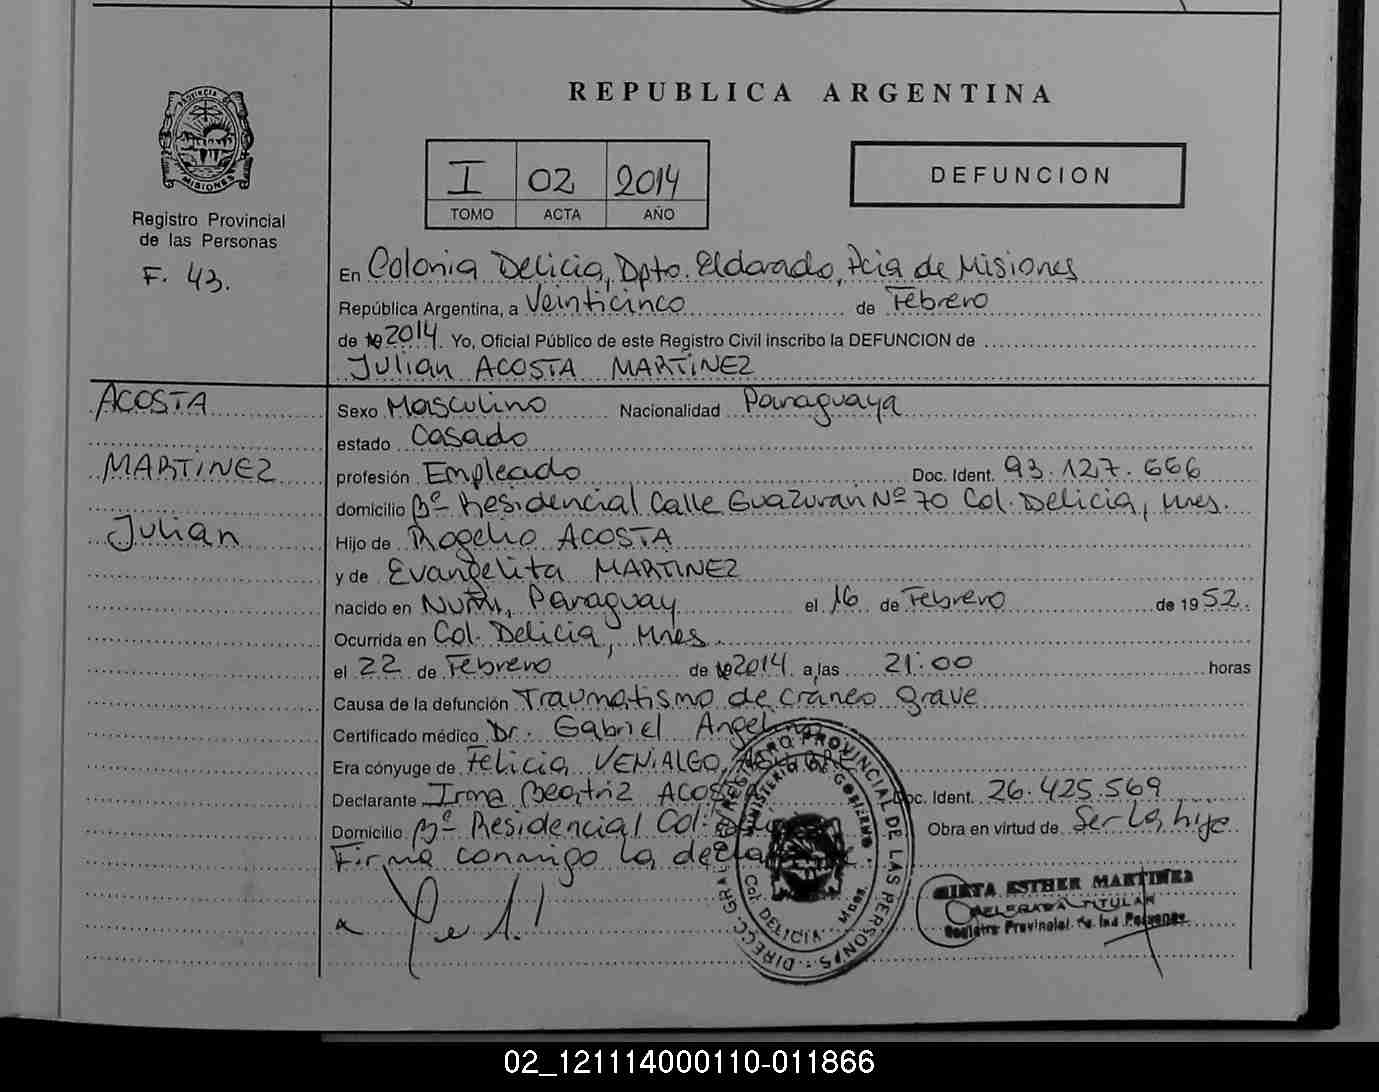 REPUBLICA ARGENTINA
PROVINCIA DE
MISIONES
Registro Provincial
de las Personas
F. 43.
I 02 2014
TOMO ACTA AÑO
DEFUNCION
En Colonia Delicia, Dpto. Eldorado, Pcia de Misiones
República Argentina, a Veinticinco de Febrero
de 19 2014. Yo, Oficial Público de este Registro Civil inscribo la DEFUNCION de
Julian ACOSTA MARTINEZ
ACOSTA
MARTINEZ
Julian
Sexo Masculino Nacionalidad Paraguaya
estado Casado
profesión Empleado Doc. Ident. 93.127.666
domicilio Bº Residencial Calle Guazuran Nº 70 Col. Delicia, Mnes.
Hijo de Rogelio ACOSTA
y de Evangelita MARTINEZ
nacido en Paraguay el 16 de Febrero de 1952.
Ocurrida en Col. Delicia, Mnes.
el 22 de Febrero de 19 2014 a las 21:00 horas
Causa de la defunción Traumatismo de cráneo grave
Certificado médico Dr. Gabriel Angel
Era cónyuge de Felicia VENIALGO
Declarante Irma Beatriz ACOSTA Doc. Ident. 26.425.569
Domicilio Bº Residencial Col. Obra en virtud de Ser la hija
Firma conmigo la declarante
DIRECC. GRAL. DEL REGISTRO PROVINCIAL DE LAS PERSONAS
MINISTERIO DE GOBIERNO
Col. DELICIA - Mnes.
MIRTA ESTHER MARTINEZ
DELEGADA TITULAR
Registro Provincial de las Personas
02_121114000110-011866